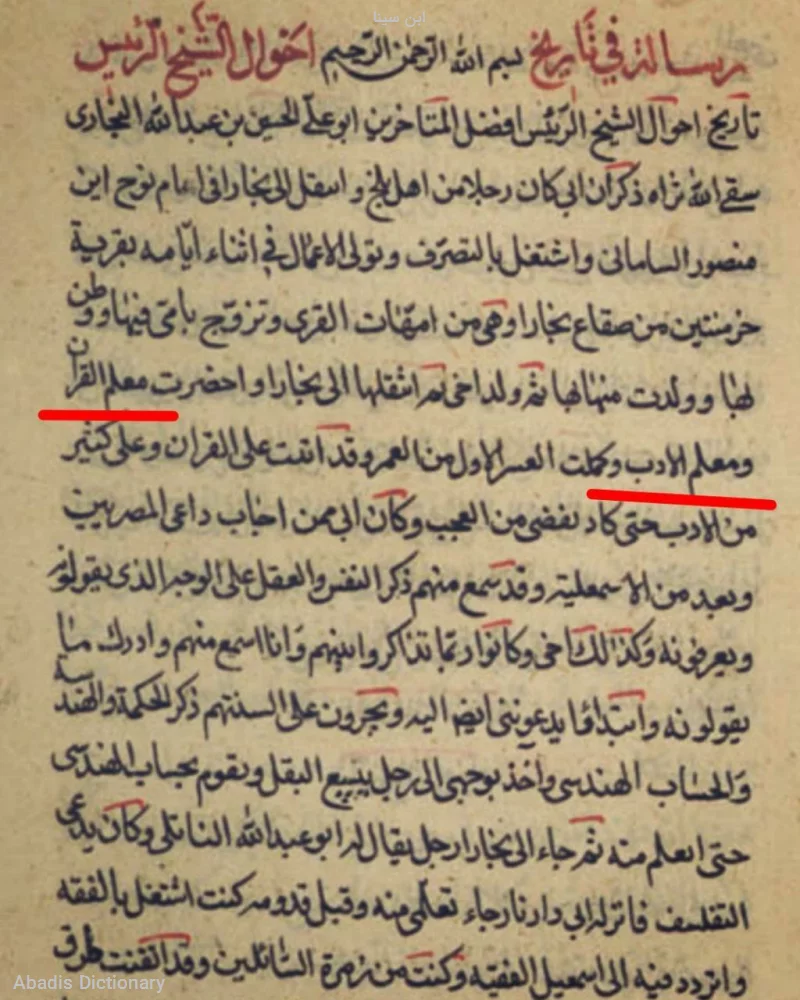 ابن سینا
رسالة في تاريخ بسم الله الرحمن الرحيم احوال الشيخ الرئيس
تاريخ احوال الشيخ الرئيس افضل المتاخرين ابو علي الحسين بن عبدالله البخارى
سقى الله ثراه ذكر ان ابى كان رجلا من اهل بلخ و انتقل الى بخارا فى ايام نوح ابن
منصور السامانى واشتغل بالتصرف وتولى الاعمال في اثناء ايامه بقرية
خرمنتين من صقاع بخارا وهى من امهات القرى وتزوج بامى فيها ووطن
لها وولدت منها بها ثم ولد اخى ثم انتقلها الى بخارا و احضرت معلم القرآن
ومعلم الادب وكملت العشر الاول من العمر وقد اتيت على القران وعلى كثير
من الادب حتى كاد يقضى من العجب وكان ابى ممن اجاب داعى المصريين
ويعد من الاسمعلية وقد سمع منهم ذكر النفس والعقل على الوجه الذى يقولونه
ويعرفونه وكذلك اخى وكانوا ربما تذاكروا بينهم وانا اسمع منهم وادرك ما
يقولونه وابتداوا يدعوننى ايضا اليه ويجرون على السنتهم ذكر الحكمة والهندسة
والحساب الهندسى واخذ يوجهنى الى رجل يبيع البقل ويقوم بحساب الهندسى
حتى اتعلم منه ثم جاء الى بخارا رجل يقال له ابو عبدالله الناتلى وكان يدعى
التفلسف فانزله ابى دارنا رجاء تعلمى منه وقبل قدومه كنت اشتغل بالفقه
واتردد فيه الى اسمعيل الفقيه وكنت من زمرة السائلين وقد اتقنت طرق
Abadis Dictionary